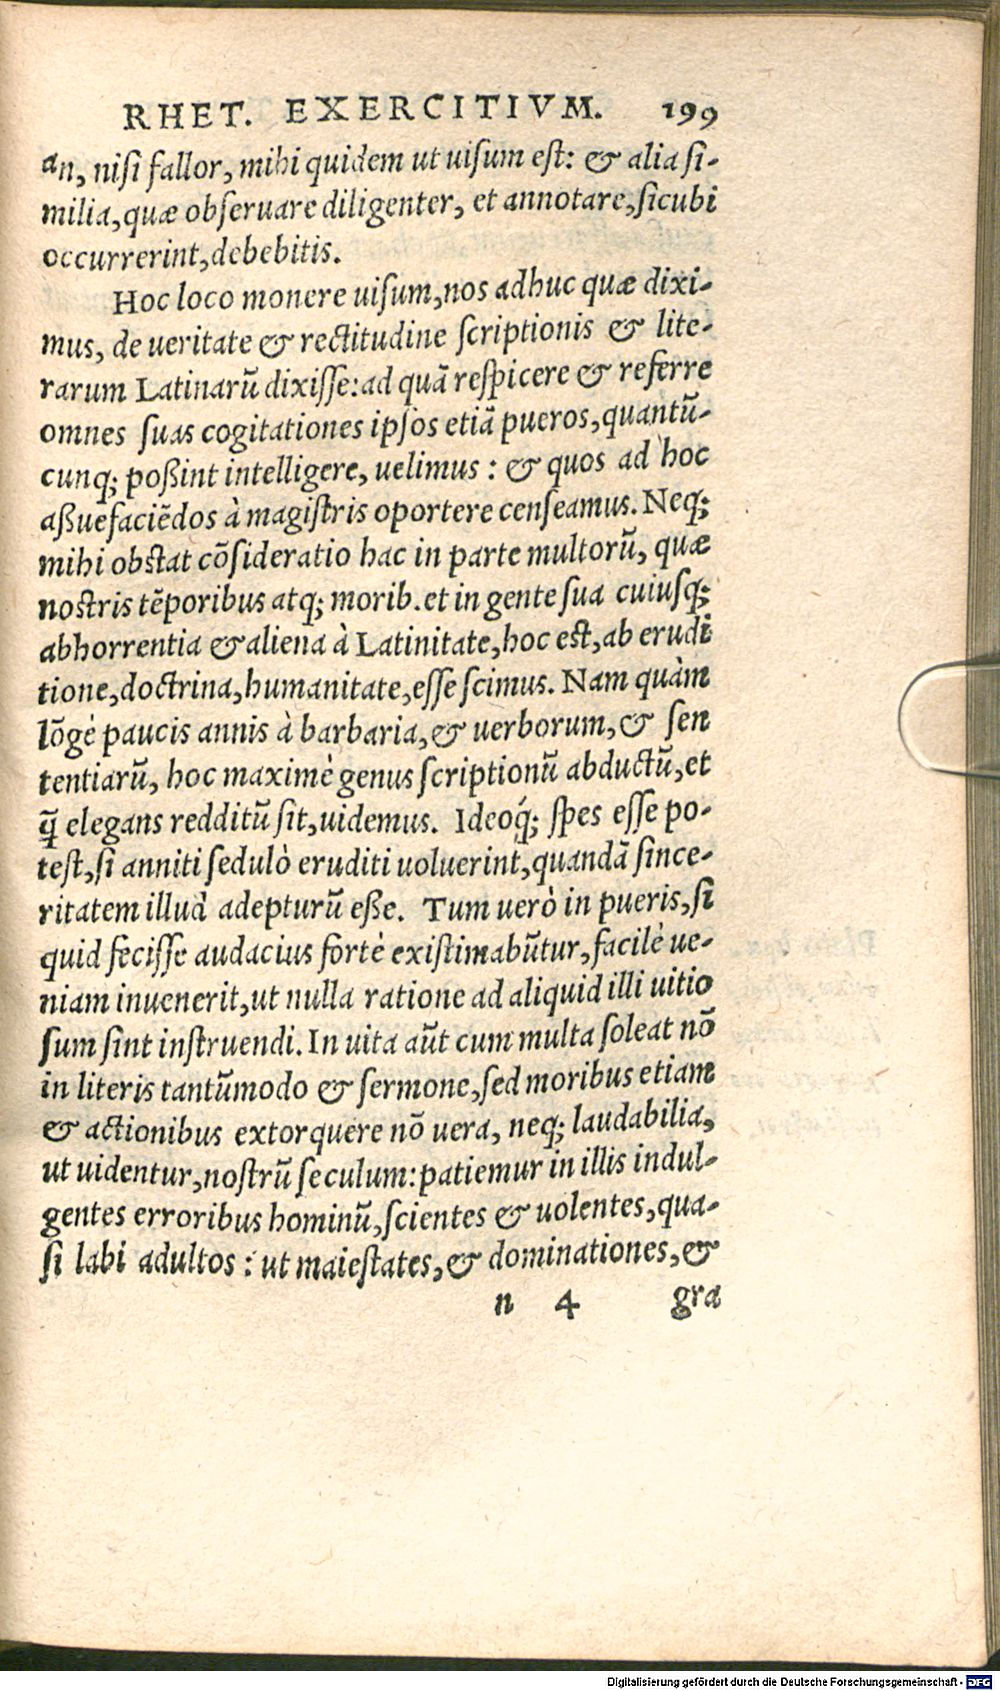 RHET. EXERCITIVM. 199
an, niſi fallor, mihi quidem ut uiſum eſt: & alia ſi-
milia, quæ obſeruare diligenter, et annotare, ſicubi
occurrerint, debebitis.
Hoc loco monere uiſum, nos adhuc quæ dixi-
mus, de ueritate & rectitudine ſcriptionis & lite-
rarum Latinarũ dixiſſe: ad quã reſpicere & referre
omnes ſuas cogitationes ipſos etiã pueros, quantũ-
cunq; poßint intelligere, uelimus: & quos ad hoc
aßuefaciẽdos à magiſtris oportere cenſeamus. Neq;
mihi obstat cõſideratio hac in parte multorũ, quæ
nostris tẽporibus atq; morib. et in gente ſua cuiuſq;
abhorrentia & aliena à Latinitate, hoc est, ab erudi
tione, doctrina, humanitate, eſſe ſcimus. Nam quàm
lõgè paucis annis à barbaria, & uerborum, & ſen
tentiarũ, hoc maximè genus ſcriptionũ abductũ, et
q̃ elegans redditũ ſit, uidemus. Ideoq́; ſpes eſſe po-
teſt, ſi anniti ſedulò eruditi uoluerint, quandã ſince-
ritatem illud adepturũ eße. Tum uerò in pueris, ſi
quid feciſſe audacius fortè exiſtimabũtur, facilè ue-
niam inuenerit, ut nulla ratione ad aliquid illi uitio
ſum ſint inſtruendi. In uita aũt cum multa ſoleat nõ
in literis tantũmodo & ſermone, ſed moribus etiam
& actionibus extorquere nõ uera, neq; laudabilia,
ut uidentur, noſtrũ ſeculum: patiemur in illis indul-
gentes erroribus hominũ, ſcientes & uolentes, qua-
ſi labi adultos: ut maieſtates, & dominationes, &
n 4 gra
Digitalisierung gefördert durch die Deutsche Forschungsgemeinschaft - DFG